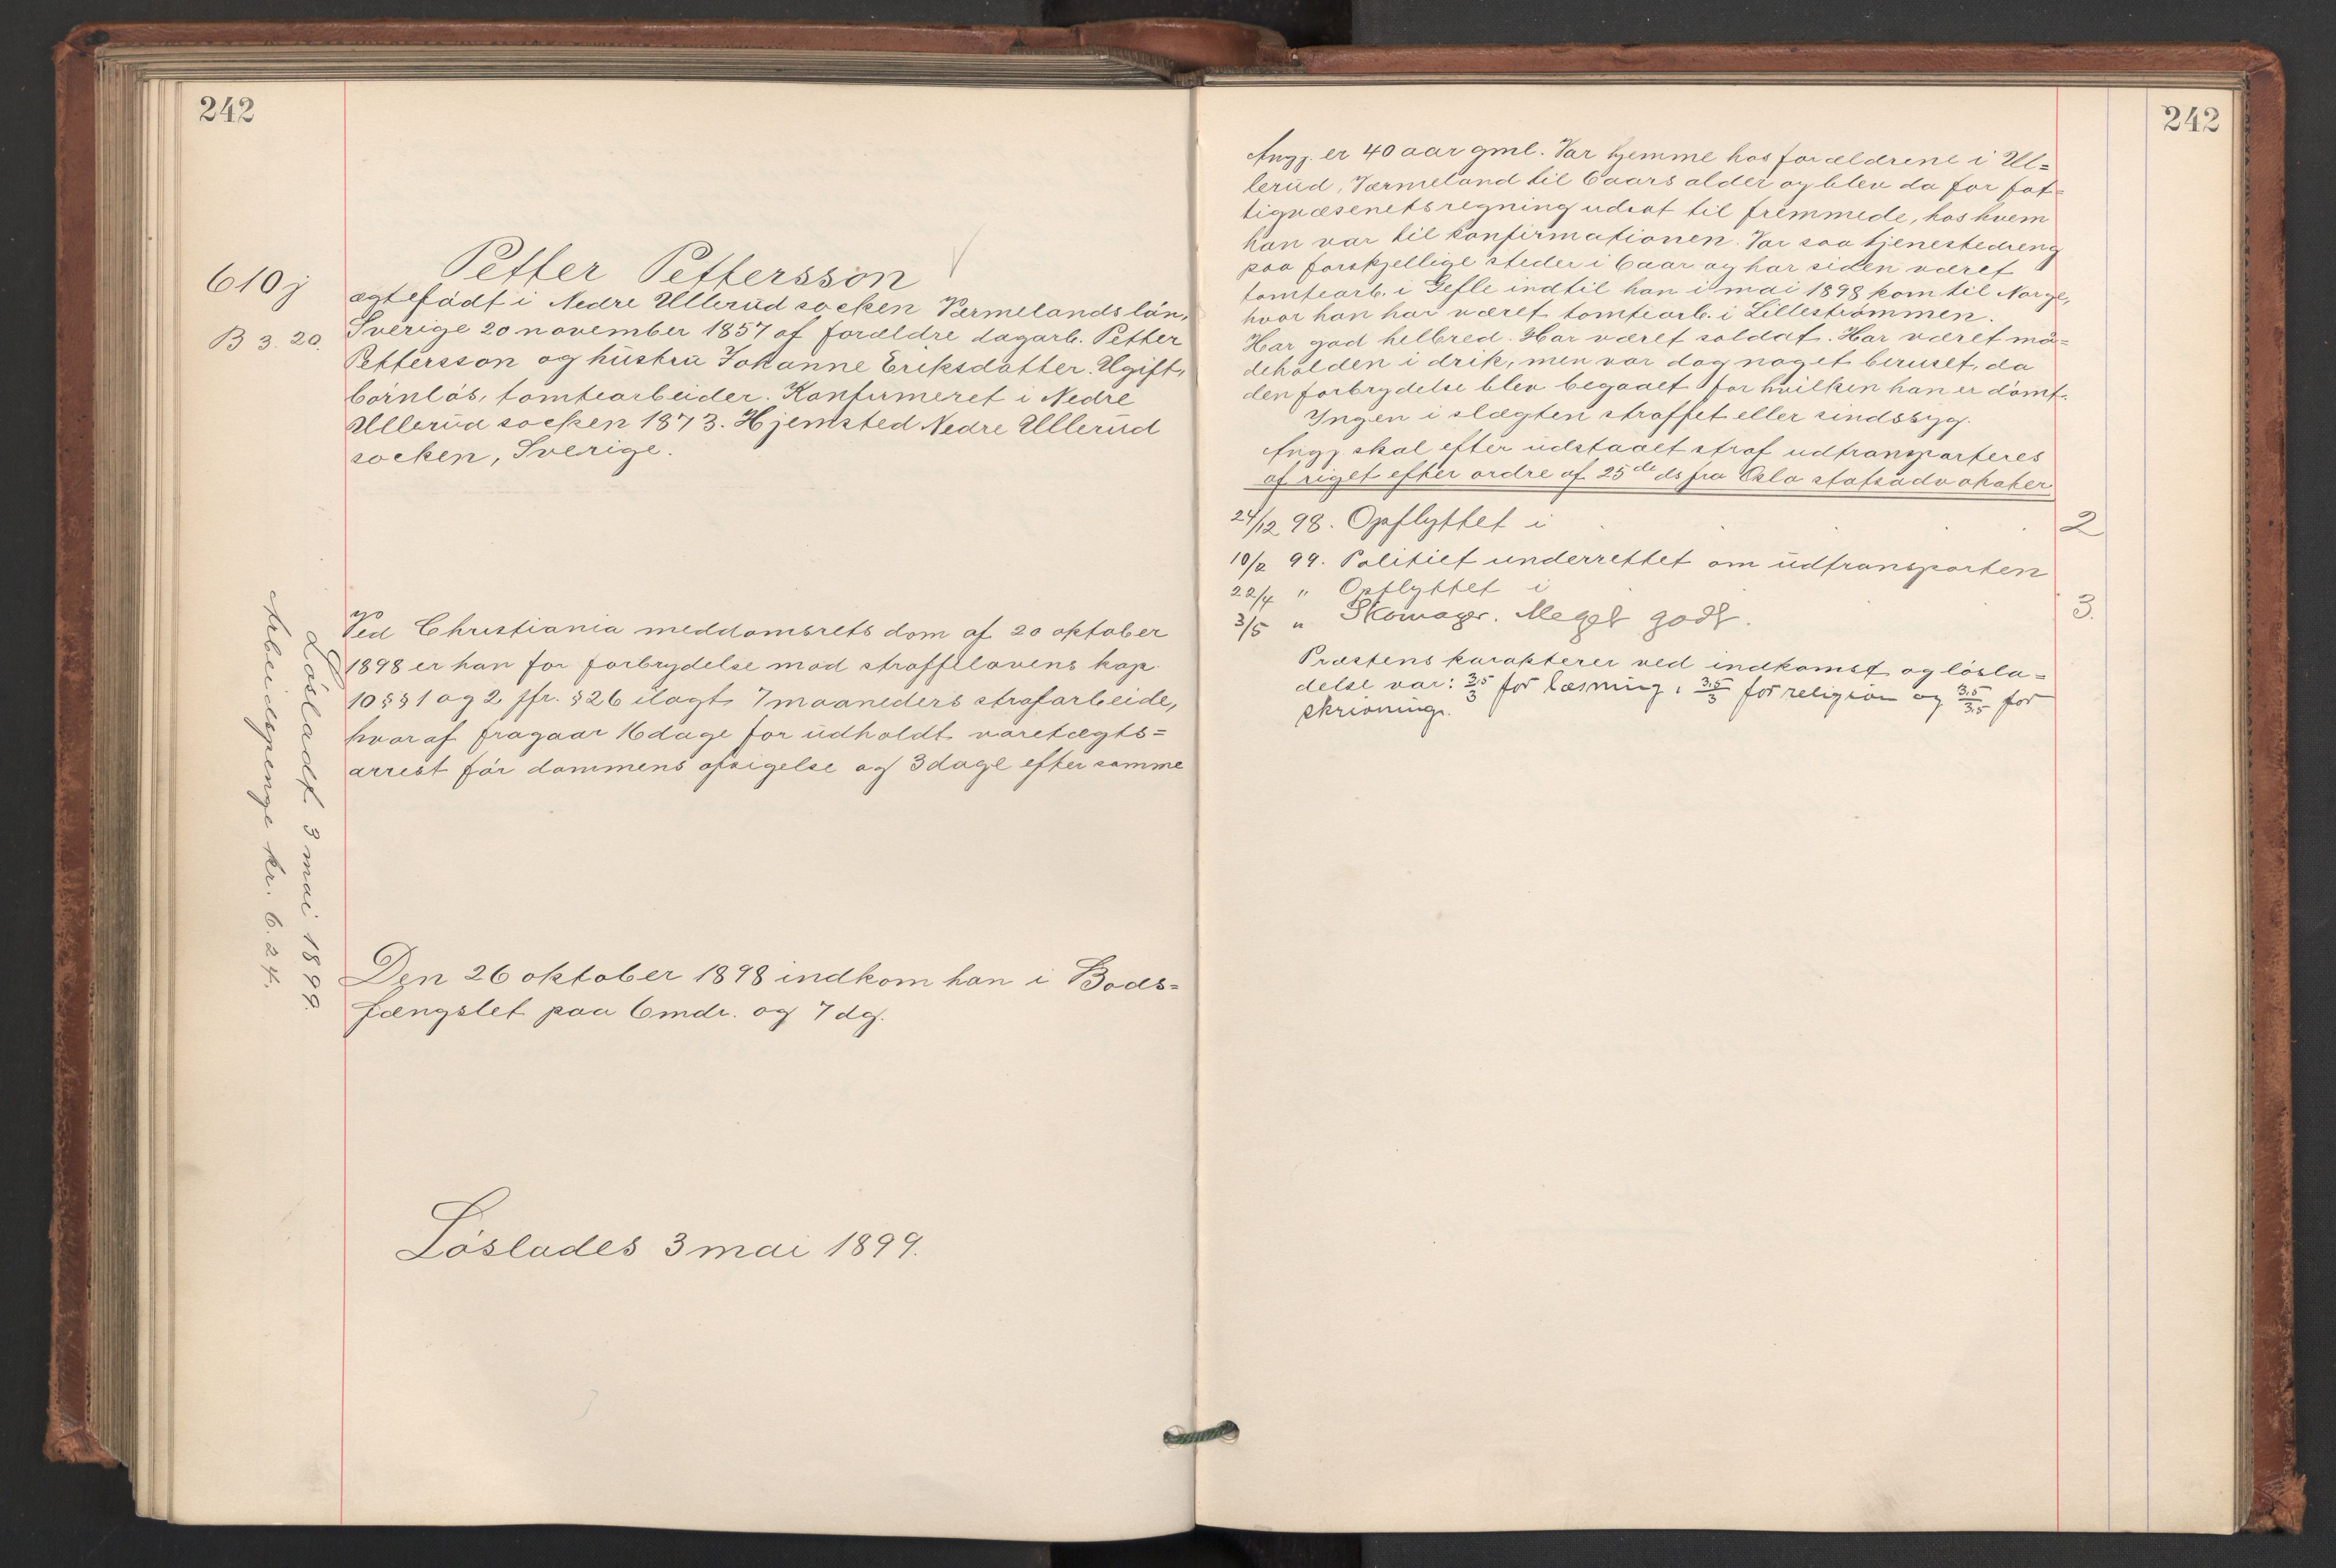 242
610 j
B 3. 20.
Petter Pettersson
ægtefödt i Nedre Ullerud socken Vermelands län,
Sverige 20 november 1857 af forældre dagarb. Petter
Pettersson og hustru Johanne Eriksdatter. Ugift,
börnlös, tomtearbeider. Konfirmeret i Nedre
Ullerud socken 1873. Hjemsted Nedre Ullerud
socken, Sverige.
Ved Christiania meddomsrets dom af 20 oktober
1898 er han for forbrydelse mod straffelovens kap.
10 §§ 1 og 2 jfr. § 26 ilagt 7 maaneders strafarbeide,
hvoraf fragaar 16 dage for udholdt varetægts=
arrest för dommens afsigelse og 3 dage efter samme
Lösladt 3 mai 1899.
Arbeidspenge kr. 6.24.
Den 26 oktober 1898 indkom han i Bods=
fængslet paa 6 mdr. og 7 dg.
Löslades 3 mai 1899.
242
Angj. er 40 aar gml. Var hjemme hos forældrene i Ul=
lerud, Værmeland til 6 aars alder og blev da for fat=
tigvæsenets regning udsat til fremmede, hos hvem
han var til konfirmationen. Var saa tjenestedreng
paa forskjellige steder i 6 aar og har siden været
tomtearb. i Gefle indtil han i mai 1898 kom til Norge,
hvor han har været tomtearb. i Lilleströmmen.
Har god helbred. Har været soldat. Har været må=
deholden i drik, men var dog noget beruset, da
den forbrydelse blev begaaet for hvilken han er dömt.
Yngen i slægten straffet eller sindssyg.
Angj skal efter udstaaet straf udtransporteres
af riget efter ordre af 25de ds fra Oslo statsadvokater
24/12 98. Opflyttet i 2
10/2 99. Politiet underrettet om udtransporten
22/4 " Opflyttet i 3.
3/5 " Skomager. Meget godt.
Præstens karakterer ved indkomst og lösla=
delse var: 3.5/3 for læsning, 3.5/3 for religion og 3.5/3.5 for
skrivning.